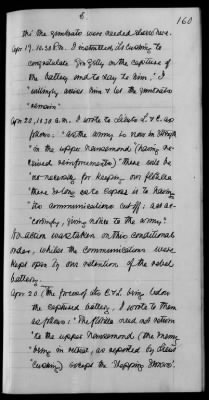 6.
160
that the gunboats were needed elsewhere.
Apr. 19. 10.30 P.M. I instructed Lt. Cushing to
congratulate Gen Getty on the capture of
the battery and to say to him, "I
"willingly assist him & let the gunboats
"remain"
Apr. 20, 10.30 a.m. I wrote to Lieuts L. & C. as
follows: "As the army is now in strength
"in the upper Nansemond (having re-
"ceived reinforcements) there will be
"no necessity for keeping our flotilla
"there so long as to expose it to having
"its communications cut off; act ac-
"cordingly, giving notice to the army."
No action was taken on this conditional
order, whilst the communications were
kept open by our retention of the rebel
battery.
Apr. 20 (the forces of Lts. C & L. being below
the captured battery, I wrote to them
as follows: "The flotilla need not return
"to the upper Nansemond (the enemy
"being in retreat, as reported by Lieut
"Cushing) except the Stepping Stones".